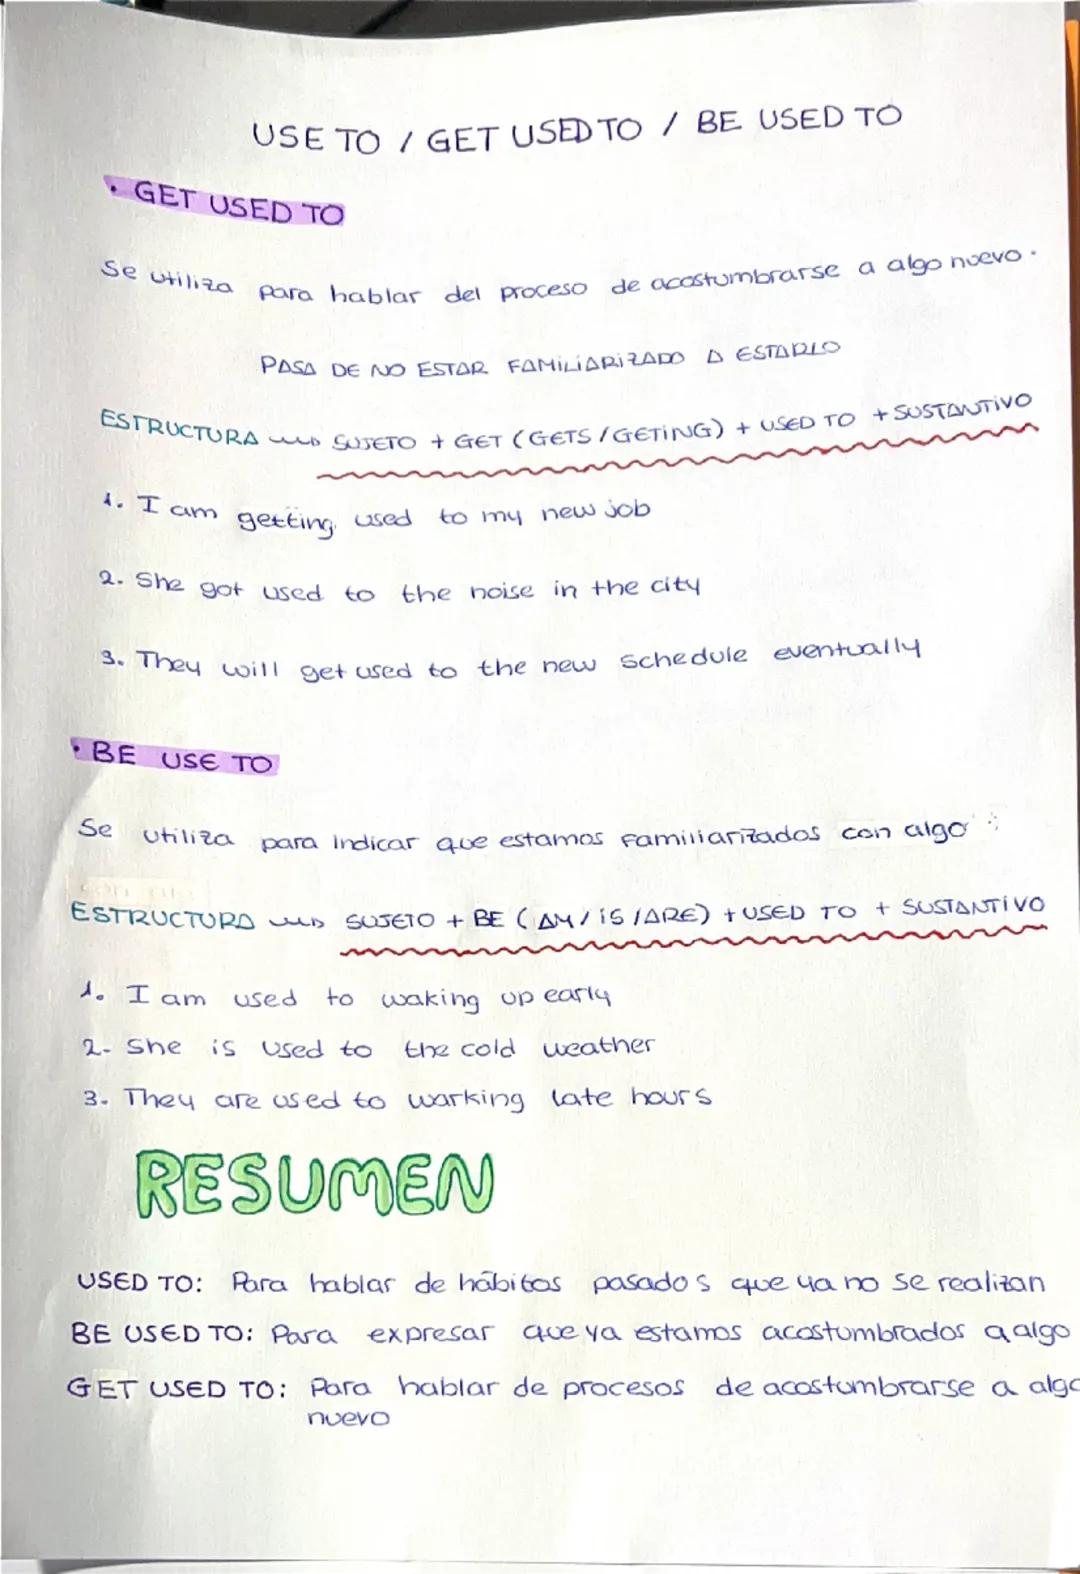 USE TO / GET USED TO / BE USED TO
• GET USED TO
Se utiliza para hablar del proceso de acostumbrarse a algo nuevo.
PASA DE NO ESTAR FAMILIARIZADO A ESTARLO
ESTRUCTURA → SUJETO + GET (GETS / GETING) + USED TO + SUSTANTIVO
1. I am getting used to my new job
2. She got used to the noise in the city
3. They will get used to the new schedule eventually
• BE USE TO
Se utiliza para indicar que estamos familiarizados con algo
ESTRUCTURA → SUJETO + BE (AM / IS / ARE) + USED TO + SUSTANTIVO
1. I am used to waking up early
2- She is used to the cold weather
3. They are used to warking late hours
RESUMEN
USED TO: Para hablar de hábitos pasados que ya no se realizan
BE USED TO: Para expresar que ya estamos acostumbrados a algo
GET USED TO: Para hablar de procesos de acostumbrarse a algo
nuevo